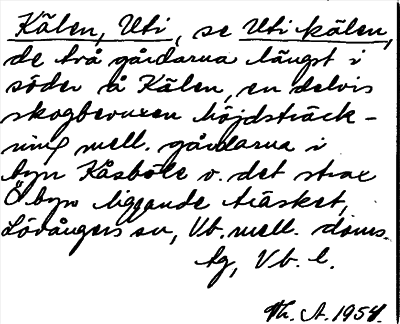 Kälen, Uti, se Uti kälen,
de två gårdarna längst i
söder å Kälen, en delvis
skogbevuxen höjdsträck-
ning mell. gårdarna i
byn Kåsböle o. det strax
Ö byn liggande träsket,
Lövångers sn, Vb. mell. doms.
tg, Vb. l.
Th. A. 1954.